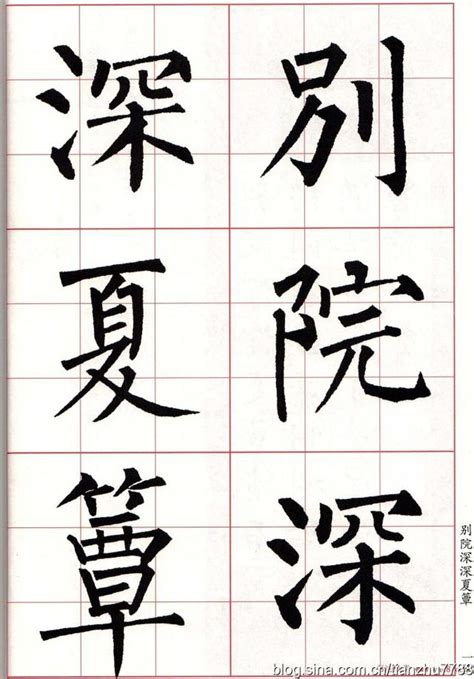 別院深
深夏簟
别院深深夏簟
blog.sina.com.cn/tianzhu7788